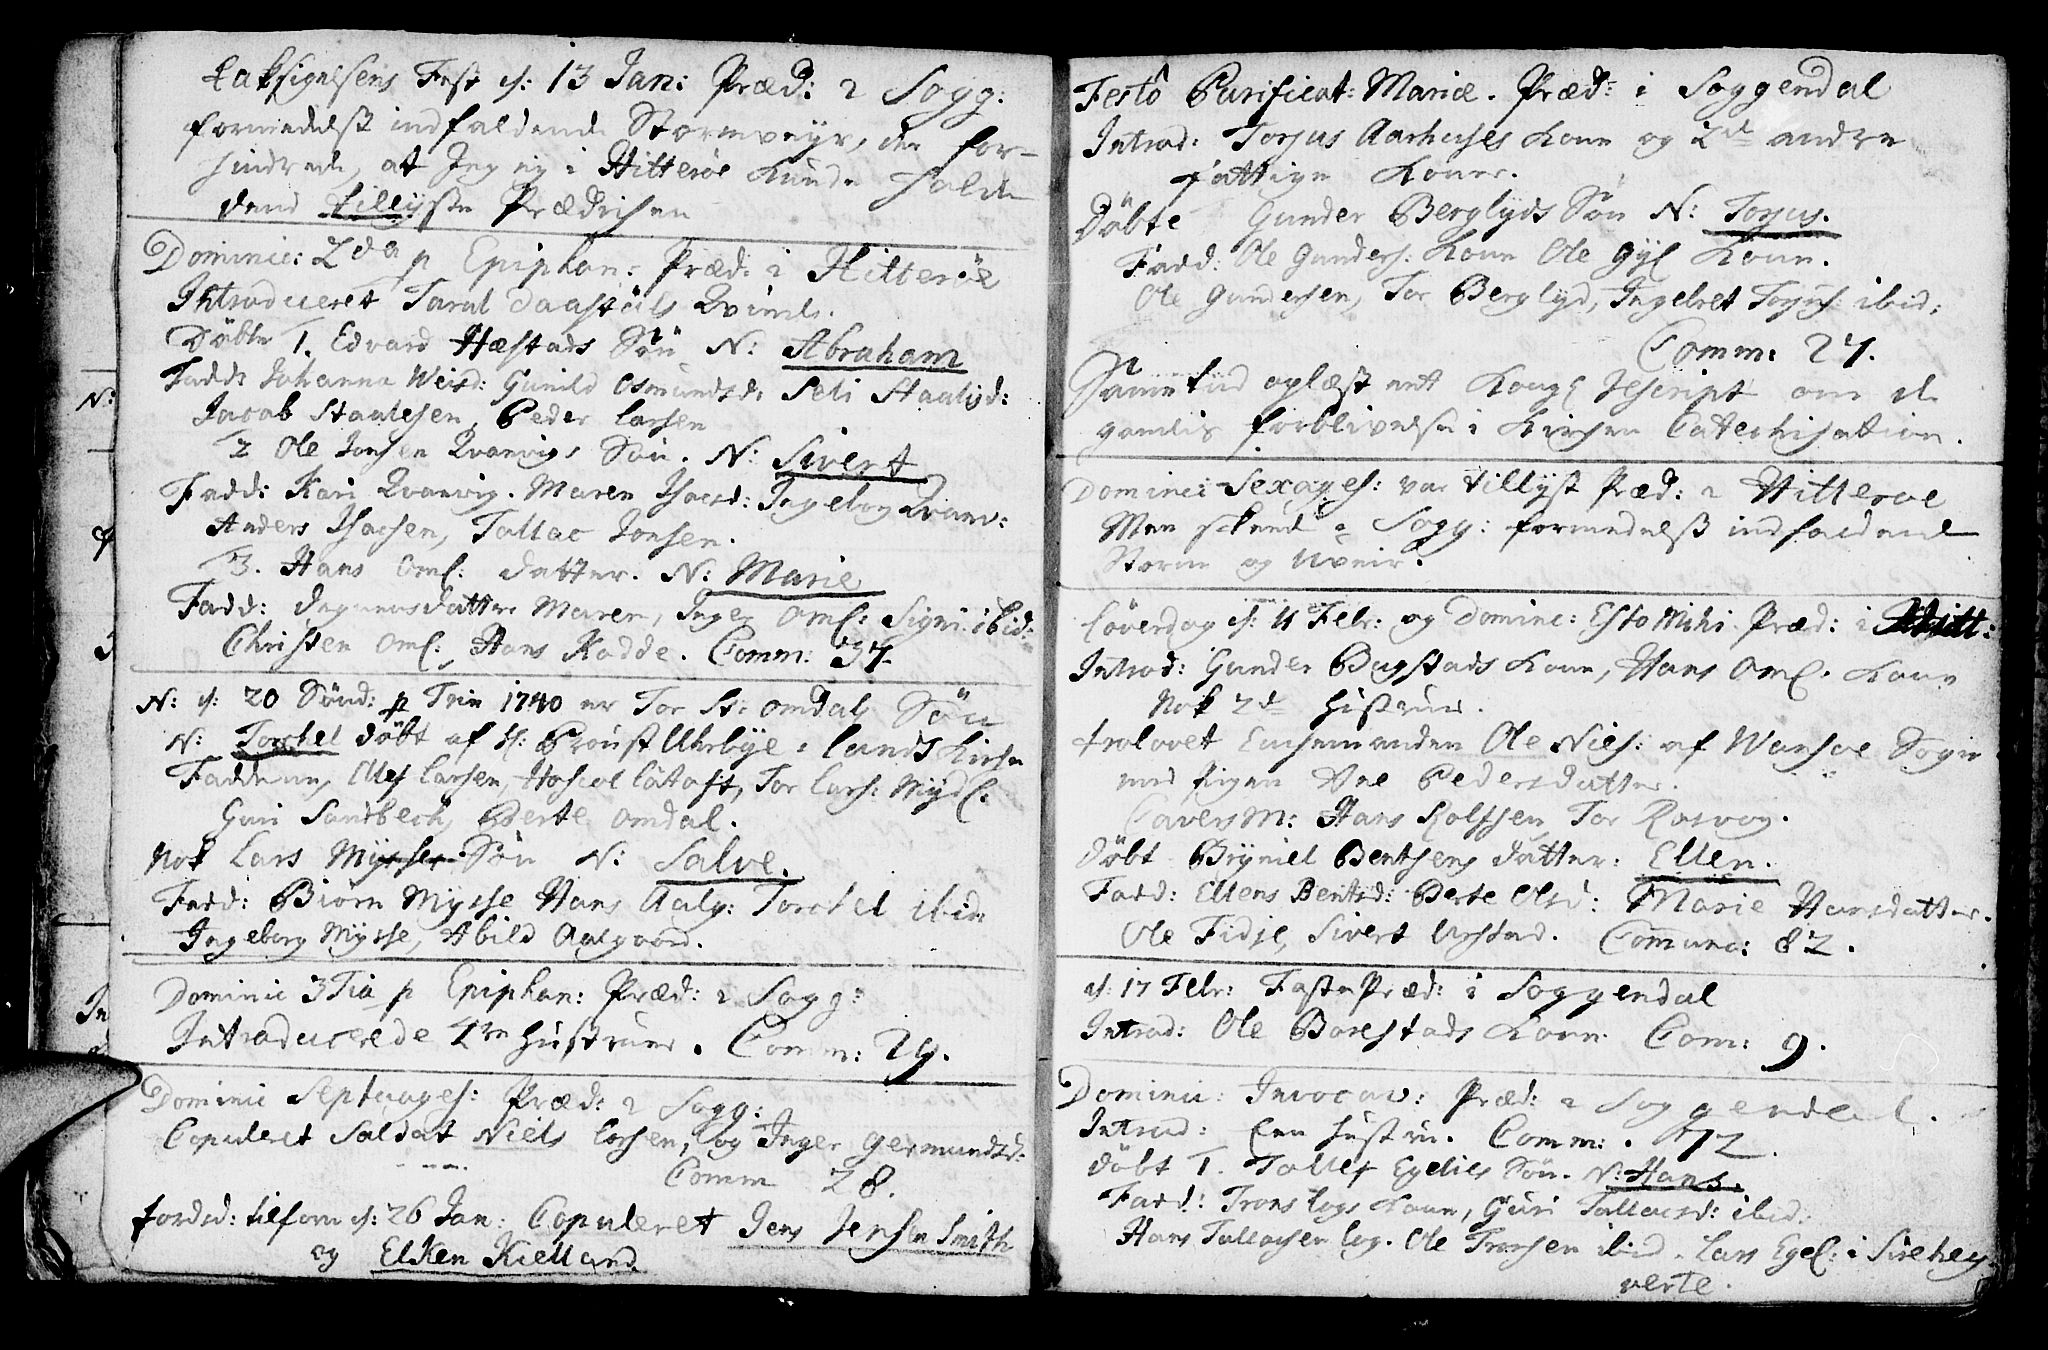 Taksigelsens Fest d: 13 Jan: Præd: i Sogg:
formedelst indfaldende Stormveyr, der for-
hindrede, at Jeg ey i Hitterøe kunde holde
dend tillyste Prædichen
Dominic: 2da p Epiphan: Præd: i Hitterøe
Introduceret Tarul Daastøls Qvinde.
Døbte 1. Edvard Hæstads Søn N: Abraham
Fadd: Johanna Weisd: Gunild Osmundsd: Seli Staalesd:
Jacob Staalesen, Peder Larsen
2 Ole Jonsen Qvanvigs Søn. N: Sivert
Fadd: Kari Qvanvig. Maren Isacsd: Ingeborg Qvanv:
Anders Isachsen, Tallac Jonsen.
3. Hans Oml: datter. N: Marie
Fadd: datter Maren, Inger Oml: Signi ibid:
Christen Oml: Hans Rodde. Comm: 37.
N: d: 20 Sønd: p Trin 1740 er Tor St: Omdals Søn
N: Torchel døbt af H: Proust Uhrbye i Lunds Kirche
Fadderne, Olef Larsen, Tor Lars: Mydl:
Guri Sandbech, Berte Omdal.
Nok Lars Mysses Søn N: Salve.
Fadd: Biørn Mysse Hans Aalg: Torchel ibid
Ingeborg Mysse, Abild Aalgaard.
Dominic 3Tia p Epiphan: Præd: i Sogg:
Introducerede 2de Hustruer. Comm: 29.
Dominic Septuages: Præd: i Sogg:
Copuleret Saldat Niels Larsen, og Inger Germundsd:
Comm 28.
Torsd: tilforn d: 26 Jan: Copuleret Jens Jensen Smith
og Elken Kielland.
Festo Purificat: Mariæ. Præd: i Soggendal
Introd: Torjus Aarhuses Kone og 2de andre
fattige Koner.
Døbte Gunder Berglyds Søn N: Torjus.
Fadd: Ole Gunders: Kone Ole Gyl Kone.
Ole Gundersen, Tor Berglyd, Ingebret Torjus: ibid:
Comm: 27.
Samme tid oplæst ett Kongl Rescript om de
gamles forblivelse i Kirchen Catechisation.
Dominic Sexages: var tillyst Præd: i Hitterøe
Men skeede i Sogg: formedelst indfaldende
Storm og Uveir.
Løverdag d: 11 Febr: og Dominc: Esto Mihi Præd: i Hitt:
Introd: Gunder Bugstads Kone, Hans Oml. Kone
Nok 2de Hustruer.
trolovet Enchemanden Ole Niels: af Wansøe Sogn
med Pigen Ane Pedersdatter.
Caverm: Hans Rolfsen, Tor Rasvog.
Døbt Bryniel Bentsens datter: Ellen.
Fadd: Ellens Bentsd: Berte Olsd: Marie Hansdatter.
Ole Fidje, Sivert Urstad. Communc: 82.
d: 17 Febr: FastePræd: i Soggendal
Introd: Ole Borestads Kone Com: 9.
Dominic: Invocav: Præd: i Soggendal.
Introd: Een Hustru. Comm: 72.
Døbt 1. Tollef Egelies Søn. N: Hans.
Fadd: Trons Logs Kone, Guri Tallacsd: ibid:
Hans Tallachsen Log. Ole Tronsen ibid Lars Egel: i Sirehey
verte.
N:
3
In